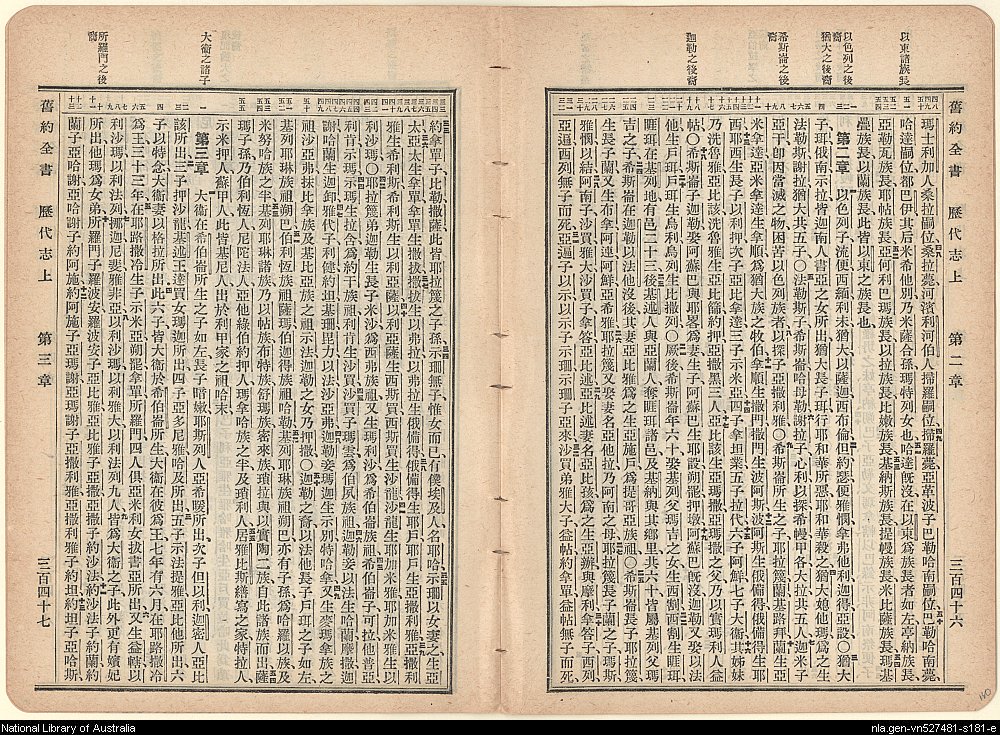 以東諸族長
以色列之後裔
猶大之後裔
希斯崙之後裔
迦勒之後裔
舊約全書 歷代志上 第二章 三百四十六
瑪士利加人桑拉嗣位桑拉薨河濱利河伯人掃羅嗣位掃羅薨亞革波子巴勒哈南嗣位巴勒哈南薨
哈達嗣位都巴伊其后米希他別乃米薩合孫瑪特列女也哈達旣沒在以東爲族長者如左亭納族長
亞勒瓦族長耶帖族長亞何利巴瑪族長以拉族長比嫩族長基納斯族長提幔族長米比薩族長瑪基
疊族長以蘭族長此皆以東之族長也
第二章 以色列子流便西緬利未猶大以薩迦西布倫但約瑟便雅憫拿弗他利迦得亞設〇猶大
子珥俄南示拉皆迦南人書亞之女所出猶大長子珥行耶和華所惡耶和華殺之猶大媳他瑪爲之生
法勒斯謝拉猶大共五子〇法勒斯子希斯崙哈母勒謝拉子心利以探希幔甲各大拉共五人迦米子
亞干卽因當滅之物困苦以色列族者以探子亞撒利雅〇希斯崙所生之子耶拉篾蘭基路拜蘭生亞
米拿達亞米拿達生拿順爲猶大族之牧伯拿順生撒門撒門生波阿斯波阿斯生俄備得俄備得生耶
西耶西生長子以利押次子亞比拿達三子示米亞四子拿坦業五子拉代六子阿鮮七子大衛其姊妹
乃洗魯雅亞比該洗魯雅生亞比篩約押亞撒黑三人亞比該生亞瑪撒亞瑪撒之父乃以實瑪利人益
帖〇希斯崙子迦勒娶阿蘇巴與耶畧爲妻生子阿蘇巴生耶設朔罷押墩阿蘇巴旣沒迦勒又娶以法
他生戶珥戶珥生烏利烏利生比撒列〇厥後希斯崙年六十娶基列父瑪吉之女生西割西割生睚珥
睚珥在基列地有邑二十三後基述人與亞蘭人奪睚珥諸邑及基納與其鄉里共六十皆屬基列父瑪
吉之子希斯崙在迦勒以法他沒後其妻亞比雅爲之生亞施戶爲提哥亞族祖〇希斯崙長子耶拉篾
生長子蘭又生布拿阿連阿鮮亞希雅耶拉篾又娶妻名亞他拉乃阿南之母耶拉篾長子蘭生瑪斯雅
憫以結阿南子沙買雅大沙買子拿答亞比述亞比述妻名亞比孩爲之生亞辦與摩利拿答子西列
亞遍西列無子而死亞遍子以示以示子示珊示珊子亞來沙買弟雅大子益帖約拿單益帖無子而死
大衞之諸子
所羅門之後裔
約拿單子比勒撒薩此皆耶拉篾之子孫示珊無子惟女而已有僕埃及人名耶哈示珊以女妻之生亞
太亞太生拿單拿單生撒拔撒拔生以弗拉以弗拉生俄備得俄備得生耶戶耶戶生亞撒利雅亞撒利
雅生希利斯希利斯生以利亞薩以利亞薩生西斯買西斯買生沙龍沙龍生耶加米雅耶加米雅生以
利沙瑪〇耶拉篾弟迦勒生長子米沙爲西弗族祖又生瑪利沙爲希伯崙族祖希伯崙子可拉他普亞
利肯示瑪示瑪生拉含爲約干族祖利肯生沙買沙買子瑪雲爲伯夙族祖迦勒妾以法生哈蘭摩撒迦
謝哈蘭生迦卸雅代子利健約坦基珊毘力以法沙亞弗迦勒妾瑪迦生示別特哈拿又生麥瑪拿族之
祖沙亞弗抹比拿族及基比亞族之祖示法迦勒之女乃押撒〇迦勒之裔以法他長子戶珥之子如左
基列耶琳族祖朔巴伯利恆族祖薩瑪伯迦得族祖哈勒基列耶琳族祖朔巴亦有子孫爲哈羅以及
米努哈族之半基列耶琳諸族乃以帖族布特族舒瑪族密來族瑣拉與以實陶二族自此諸族而出薩
瑪子孫乃伯利恆人尼陀法人亞他綠伯約押人瑪拿哈族之半及瑣利人居雅比斯繕寫之家特拉人
示米押人蘇甲人此皆基尼人出於利甲家之祖哈末
第三章 大衞在希伯崙所生之子如左長子暗嫩耶斯列人亞希暖所出次子但以利迦密人亞比
該所出三子押沙龍基述王達買女瑪迦所出四子亞多尼雅哈及所出五子示法提雅亞比他所出六
子以特念大衞妻以格拉所出此六子皆大衞於希伯崙所生大衞在彼爲王七年有六月在耶路撒冷
爲王三十三年在耶路撒冷生子示米亞朔罷拿單所羅門四人俱亞米利女拔書亞所出又生益轄以
利沙瑪以利法列挪迦尼斐雅非亞以利沙瑪以利雅大以利法列九人皆爲大衞之子此外更有嬪妃
所出他瑪爲女弟所羅門子羅波安羅波安子亞比雅亞比雅子亞撒亞撒子約沙法約沙法子約蘭約
蘭子亞哈謝亞哈謝子約阿施約阿施子亞瑪謝亞瑪謝子亞撒利雅亞撒利雅子約坦約坦子亞哈斯
舊約全書 歷代志上 第三章 三百四十七
National Library of Australia
nla.gen-vn527481-s181-e